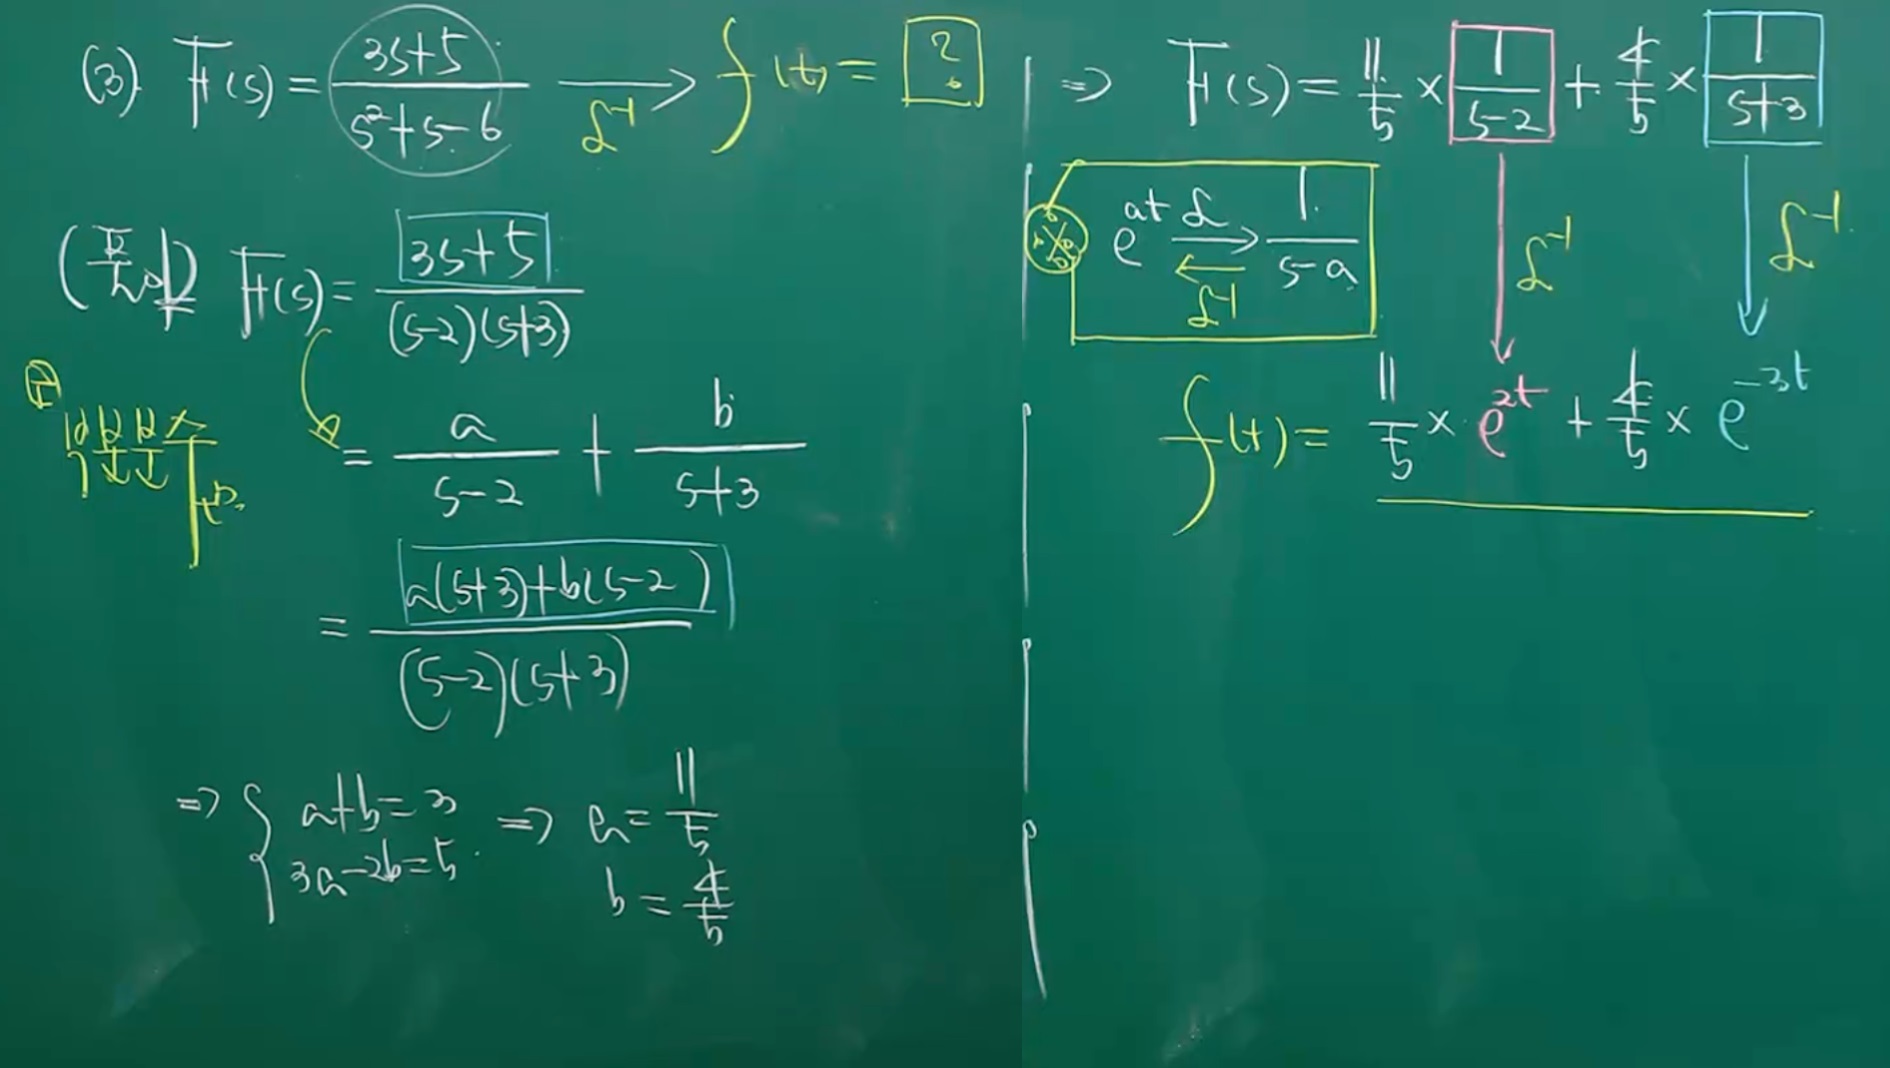 (3). F(s) = (3s+5)/(s²+s-6) →ℒ⁻¹ f(t) = ?
(풀이) F(s) = (3s+5)/((s-2)(s+3))
= a/(s-2) + b/(s+3)
= (a(s+3)+b(s-2))/((s-2)(s+3))
⇒ { a+b=3
3a-2b=5 ⇒ a = 11/5
b = 4/5
⇒ F(s) = 11/5 × 1/(s-2) + 4/5 × 1/(s+3)
e^{at} ℒ→ ←ℒ⁻¹ 1/(s-a)
ℒ⁻¹ ℒ⁻¹
f(t) = 11/5 × e^{2t} + 4/5 × e^{-3t}